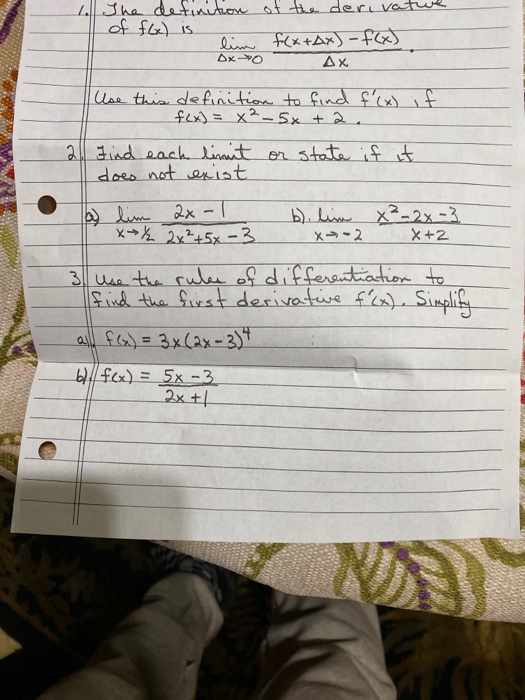 1. The definition of the derivative
of f(x) is
lim f(x+Δx) - f(x).
Δx→0 Δx
Use this definition to find f'(x) if
f(x) = x² - 5x + 2.
2. Find each limit or state if it
does not exist
a) lim 2x - 1 b). lim x² - 2x - 3
x→½ 2x² + 5x - 3 x→-2 x + 2
3. Use the rules of differentiation to
find the first derivative f'(x). Simplify
a). f(x) = 3x(2x - 3)⁴
b). f(x) = 5x - 3
2x + 1